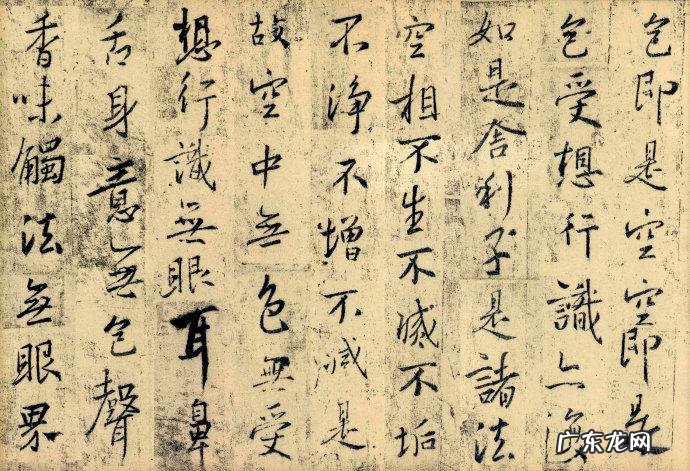 色即是空空即是
色受想行識亦復
如是舍利子是諸法
空相不生不滅不垢
不淨不增不減是
故空中無色無受
想行識無眼耳鼻
舌身意無色聲
香味觸法無眼界
广东龙网